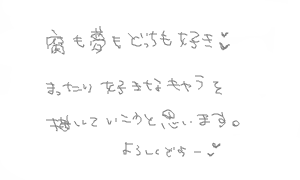 腐も夢もどっちも好き♥
まったり好きなキャラを
描いていこうと思います。
よろしくどぞー♥